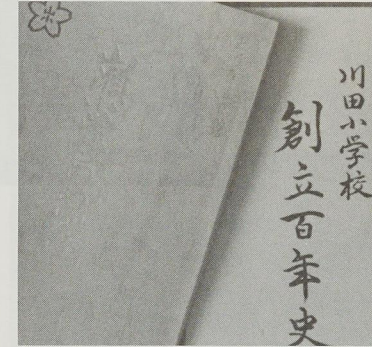 川田小学校
創立百年史